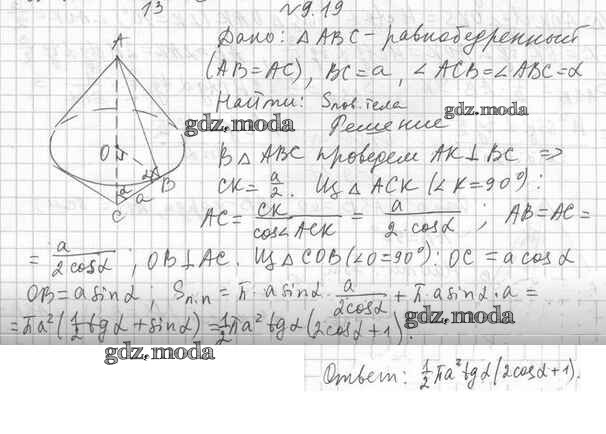 13 №9.19
Дано: △ABC - равнобедренный
(AB=AC), BC=a, ∠ACB=∠ABC=α
Найти: Sпов.тела
gdz.moda
gdz.moda
Решение
В △ABC проведем AK⊥BC ⇒
CK = a/2. Из △ACK (∠K=90°):
AC = CK/cos∠ACK = a/(2·cosα); AB=AC=
= a/(2cosα); OB⊥AC. Из △COB (∠O=90°): OC = a cosα
OB = a sinα; Sп.п = π·a sinα · a/(2cosα) + π·a sinα·a =
= πa²(1/2 tgα + sinα) = 1/2 πa² tgα(2cosα+1).
gdz.moda
gdz.moda
Ответ: 1/2 πa² tgα(2cosα+1).
A
O
α
B
α
a
C